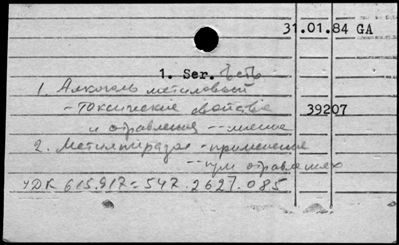 31.01.84 GA
1. Ser. Есть
1. Алкоголь метиловый
- токсические свойства 39207
и отравления -- лечение
2. Метилпиразол - применение
-- при отравлениях
УДК 615.917 = 547.2627.085